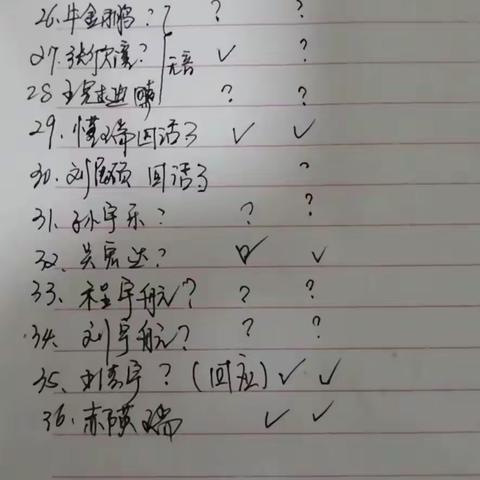 26.牛金鹏?? ? ?
27.张欣漾? 无音 ✓ ?
28 王宪 ? ?
29.懂瑞回话了 ✓ ✓
30.刘硕 回话了 ?
31.孙宇乐? ? ?
32、吴宏达? ✓ ✓
33、程宇航? ? ?
34.刘宇航? ? ?
35、刘宇?(回应) ✓ ✓
36.郝瑞 ✓ ✓